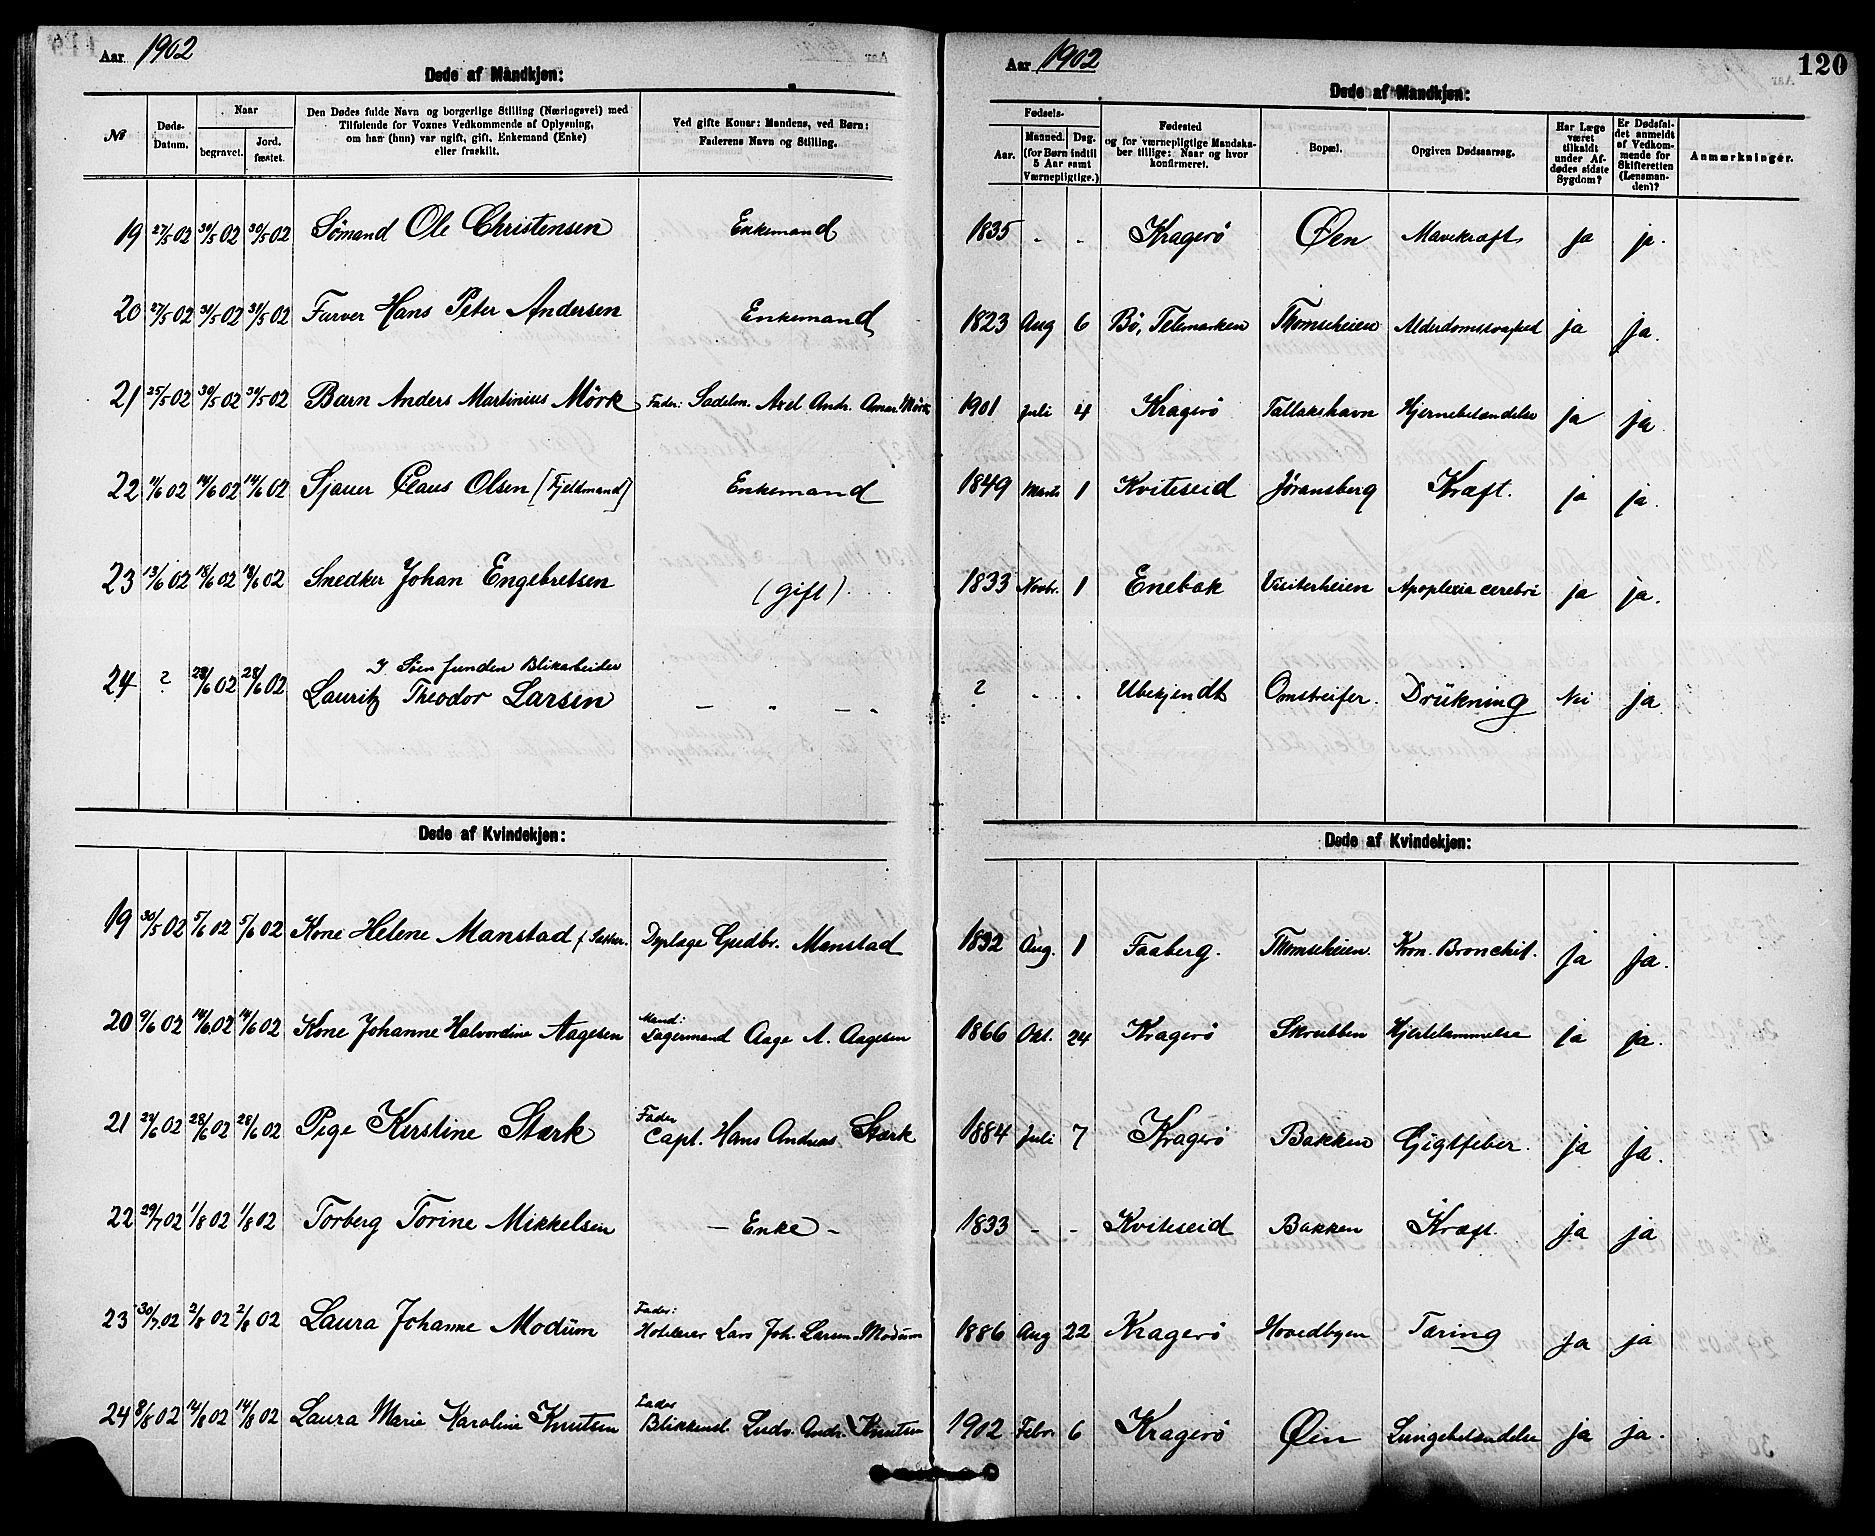 Aar 1902
Døde af Mandkjøn:
№
Døds-Datum.
Naar
begravet.
Jord. fæstet.
Den Dødes fulde Navn og borgerlige Stilling (Næringsvei) med
Tilføiende for Voxnes Vedkommende af Oplysning,
om han (hun) var ugift, gift, Enkemand (Enke)
eller fraskilt.
Ved gifte Koner: Mandens, ved Børn:
Faderens Navn og Stilling.
Aar 1902
120
Døde af Mandkjøn:
Fødsels-
Aar.
Maaned. Dag.
(for Børn indtil
5 Aar samt
Værnepligtige.)
Fødested
og for værnepligtige Mandska-
ber tillige: Naar og hvor
konfirmeret.
Bopæl.
Opgiven Dødsaarsag.
Har Læge
været
tilkaldt
under Af-
dødes sidste
Sygdom?
Er Dødsfal-
det anmeldt
af Vedkom-
mende for
Skifteretten
(Lensman-
den)?
Anmærkninger.
19 27/5 02 30/5 02 30/5 02 Sømand Ole Christensen Enkemand 1835 - - Kragerö Øen Mavekræft ja ja.
20 27/5 02 31/5 02 31/5 02 Farver Hans Peter Andersen Enkemand 1823 Aug 6 Bö, Telemarken Thomseheien Alderdomssvaghed ja ja.
21 25/5 02 30/5 02 30/5 02 Barn Anders Martinius Mörk Fader: Sadelm. Axel Andr. Mörk 1901 Juli 4 Kragerö Tallakshavn Hjernebetændelse ja ja
22 11/6 02 14/6 02 14/6 02 Sjauer Claus Olsen [Fjeldmand] Enkemand 1849 Marts 1 Kviteseid Jøransberg Kræft. ja ja.
23 13/6 02 18/6 02 18/6 02 Snedker Johan Engebretsen (gift) 1833 Novbr. 1 Enebak Visiterheien Apoplexia cerebri ja ja.
I Söen funden Blikarbeider
24 ? 28/6 02 28/6 02 Lauritz Theodor Larsen — „ — „ ? - - Ubekjendt Omstreifer. Drükning Nei ja
Døde af Kvindekjøn:
Døde af Kvindekjøn:
19 30/5 02 5/6 02 5/6 02 Kone Helene Manstad Dyrlæge Gudbr. Manstad 1832 Aug. 1 Faaberg. Thomseheien. Kron. Bronchit. ja ja.
Mand:
20 9/6 02 14/6 02 14/6 02 Kone Johanne Halvordine Aagesen Lagermand Aage A. Aagesen 1866 Okt. 24 Kragerö Skrubben Hjertelammelse ja ja.
Fader
21 24/6 02 28/6 02 28/6 02 Pige Kirstine Stærk Capt. Hans Andreas Stærk 1884 Juli 7 Kragerö Bakken Gigtfeber. ja ja.
22 29/7 02 1/8 02 1/8 02 Torberg Torine Mikkelsen — Enke - 1833 - - Kviteseid Bakken Kræft. ja ja
Fader:
23 30/7 02 2/8 02 2/8 02 Laura Johanne Modüm Hoteleier Lars Joh. Larsen Modüm 1886 Aug 22 Kragerö Hovedbyen Tæring ja ja
Fader
24 8/8 02 14/8 02 14/8 02 Laura Marie Karoline Knutsen Blikkensl. Ludv. Andr. Knutsen 1902 Febr 6 Kragerö Øen Lungebetændelse ja ja.